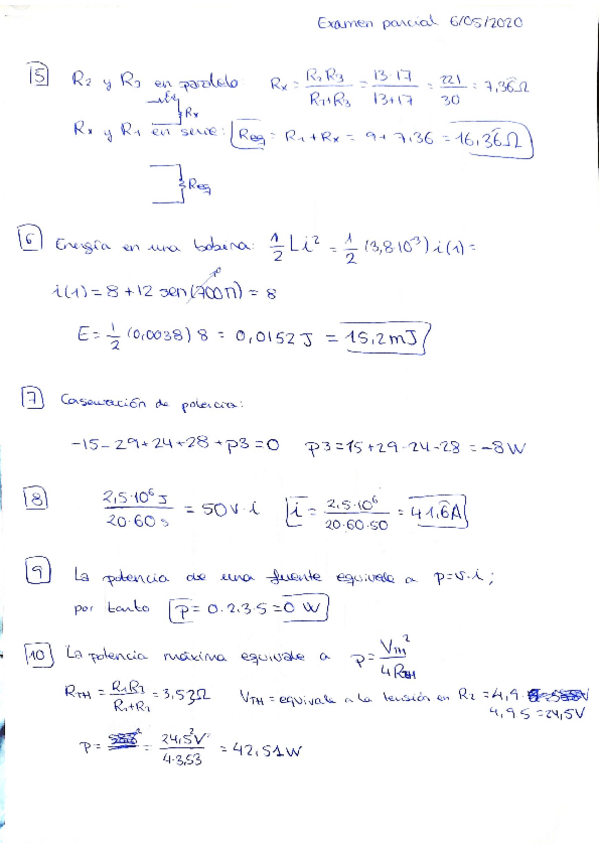 Examen parcial 6/05/2020
5 R2 y R3 en paralelo Rx = R2 R3 / R2+R3 = 13·17 / 13+17 = 221 / 30 = 7,36Ω
Rx
Rx y R1 en serie: Req = R1 + Rx = 9 + 7,36 = 16,36Ω
Req
6 Energía en una bobina: 1/2 Li² = 1/2 (3,8·10⁻³) i(1) =
i(1) = 8 + 12 sen(700π) = 8
E = 1/2 (0,0038) 8 = 0,0152 J = 15,2 mJ
7 Conservación de potencia:
-15 - 29 + 24 + 28 + p3 = 0 p3 = 15 + 29 - 24 - 28 = -8 W
8 2,5·10⁶ J / 20·60 s = 50 V · i i = 2,5·10⁶ / 20·60·50 = 41,6 A
9 La potencia de una fuente equivale a p = v·i;
por tanto p = 0·2·3·5 = 0 W
10 La potencia máxima equivale a p = VTH² / 4RTH
RTH = R1R2 / R1+R2 = 3,53Ω VTH = equivale a la tensión en R2 = 4,9·
4,9·5 = 24,5V
p = 24,5²V / 4·3,53 = 42,51 W